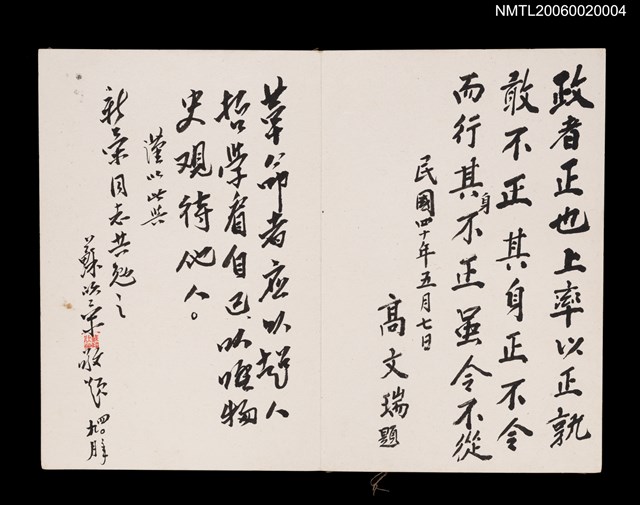 NMTL20060020004
政者正也上率以正孰
敢不正其身正不令
而行其身不正虽令不從
民國四十年五月七日
高文瑞題
革命者应以超人
哲学看自己,以唯物
史观待他人。
謹以此与
新荣同志共勉之
蘇
敬題